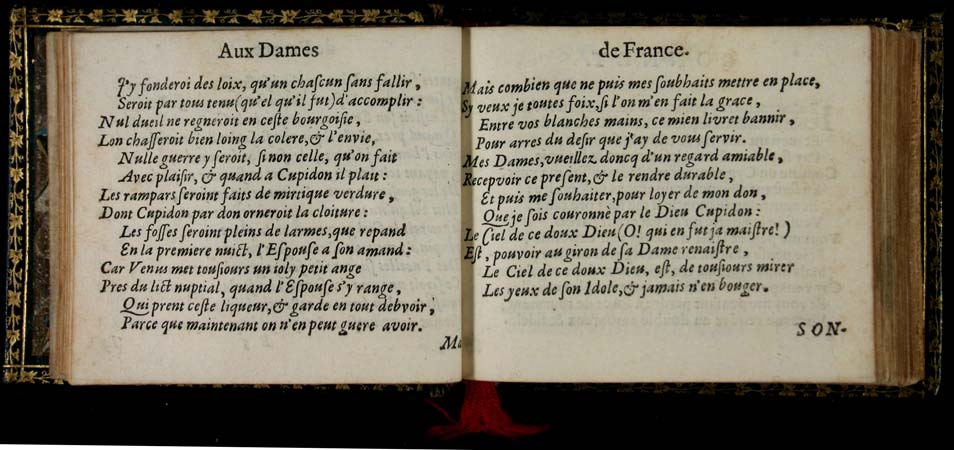 Aux Dames
J'y fonderoi des loix, qu'un chaſcun ſans fallir,
Seroit par tous tenu (qu'el qu'il fut) d'accomplir:
Nul dueil ne regneroit en ceſte bourgoiſie,
Lon chaſſeroit bien loing la colere, & l'envie,
Nulle guerre y ſeroit, ſi non celle, qu'on fait
Avec plaiſir, & quand a Cupidon il plait:
Les rampars ſeroint faits de mirtique verdure,
Dont Cupidon par don orneroit la cloiture:
Les foſſes ſeroint pleins de larmes, que repand
En la premiere nuict, l'Eſpouſe a ſon amand:
Car Venus met touſiours un ioly petit ange
Pres du lict nuptial, quand l'Eſpouſe s'y range,
Qui prent ceſte liqueur, & garde en tout debvoir,
Parce que maintenant on n'en peut guere avoir.
Ma
de France.
Mais combien que ne puis mes ſoubhaits mettre en place,
Sy veux je toutes foix, ſi l'on m'en fait la grace,
Entre vos blanches mains, ce mien livret bannir,
Pour arres du deſir que j'ay de vous ſervir.
Mes Dames, vueillez doncq d'un regard amiable,
Recepvoir ce preſent, & le rendre durable,
Et puis me ſouhaiter, pour loyer de mon don,
Que je ſois couronnè par le Dieu Cupidon:
Le Ciel de ce doux Dieu (O! qui en fut ja maiſtre!)
Eſt, pouvoir au giron de ſa Dame renaiſtre,
Le Ciel de ce doux Dieu, eſt, de touſiours mirer
Les yeux de ſon Idole, & jamais n'en bouger.
SON-